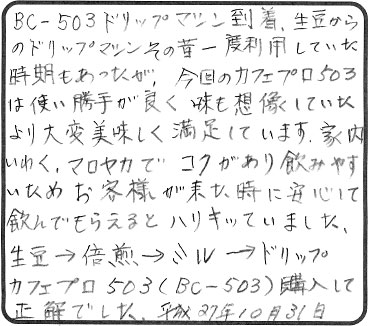 BC-503ドリップマシン到着、生豆から
のドリップマシンその昔一度利用していた
時期もあったが、今回のカフェプロ503
は使い勝手が良く味も想像していた
より大変美味しく満足しています。家内
いわく、マロヤカでコクがあり飲みやす
いためお客様が来た時に安心して
飲んでもらえるとハリキッていました、
生豆→倍煎→ミル→ドリップ
カフェプロ503(BC-503)購入して
正解でした、平成27年10月31日